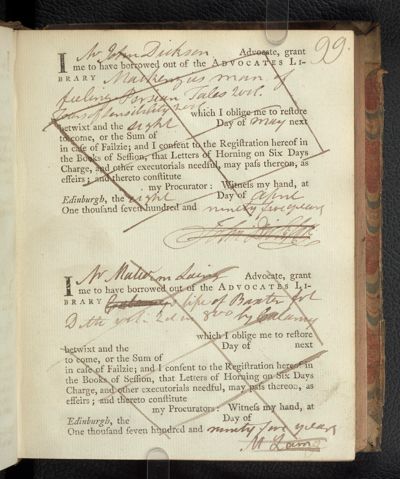 99.
I Mr John Dickson Advocate, grant
me to have borrowed out of the ADVOCATES LI-
BRARY Mackenzies man of
feeling Persian Tales 2 vol.
which I oblige me to restore
betwixt and the eight Day of May next
to come, or the Sum of
in case of Failzie; and I consent to the Registration hereof in
the Books of Session, that Letters of Horning on Six Days
Charge, and other executorials needful, may pass thereon, as
effeirs; and thereto constitute
my Procurator: Witness my hand, at
Edinburgh, the eight Day of April
One thousand seven hundred and ninety five years
John Dickson
I Mr Malcom Laing Advocate, grant
me to have borrowed out of the ADVOCATES LI-
BRARY life of Baxter fol
D the 8vo by Calamy
which I oblige me to restore
betwixt and the Day of next
to come, or the Sum of
in case of Failzie; and I consent to the Registration hereof in
the Books of Session, that Letters of Horning on Six Days
Charge, and other executorials needful, may pass thereon, as
effeirs; and thereto constitute
my Procurators: Witness my hand, at
Edinburgh, the Day of
One thousand seven hundred and ninety five years
M Laing